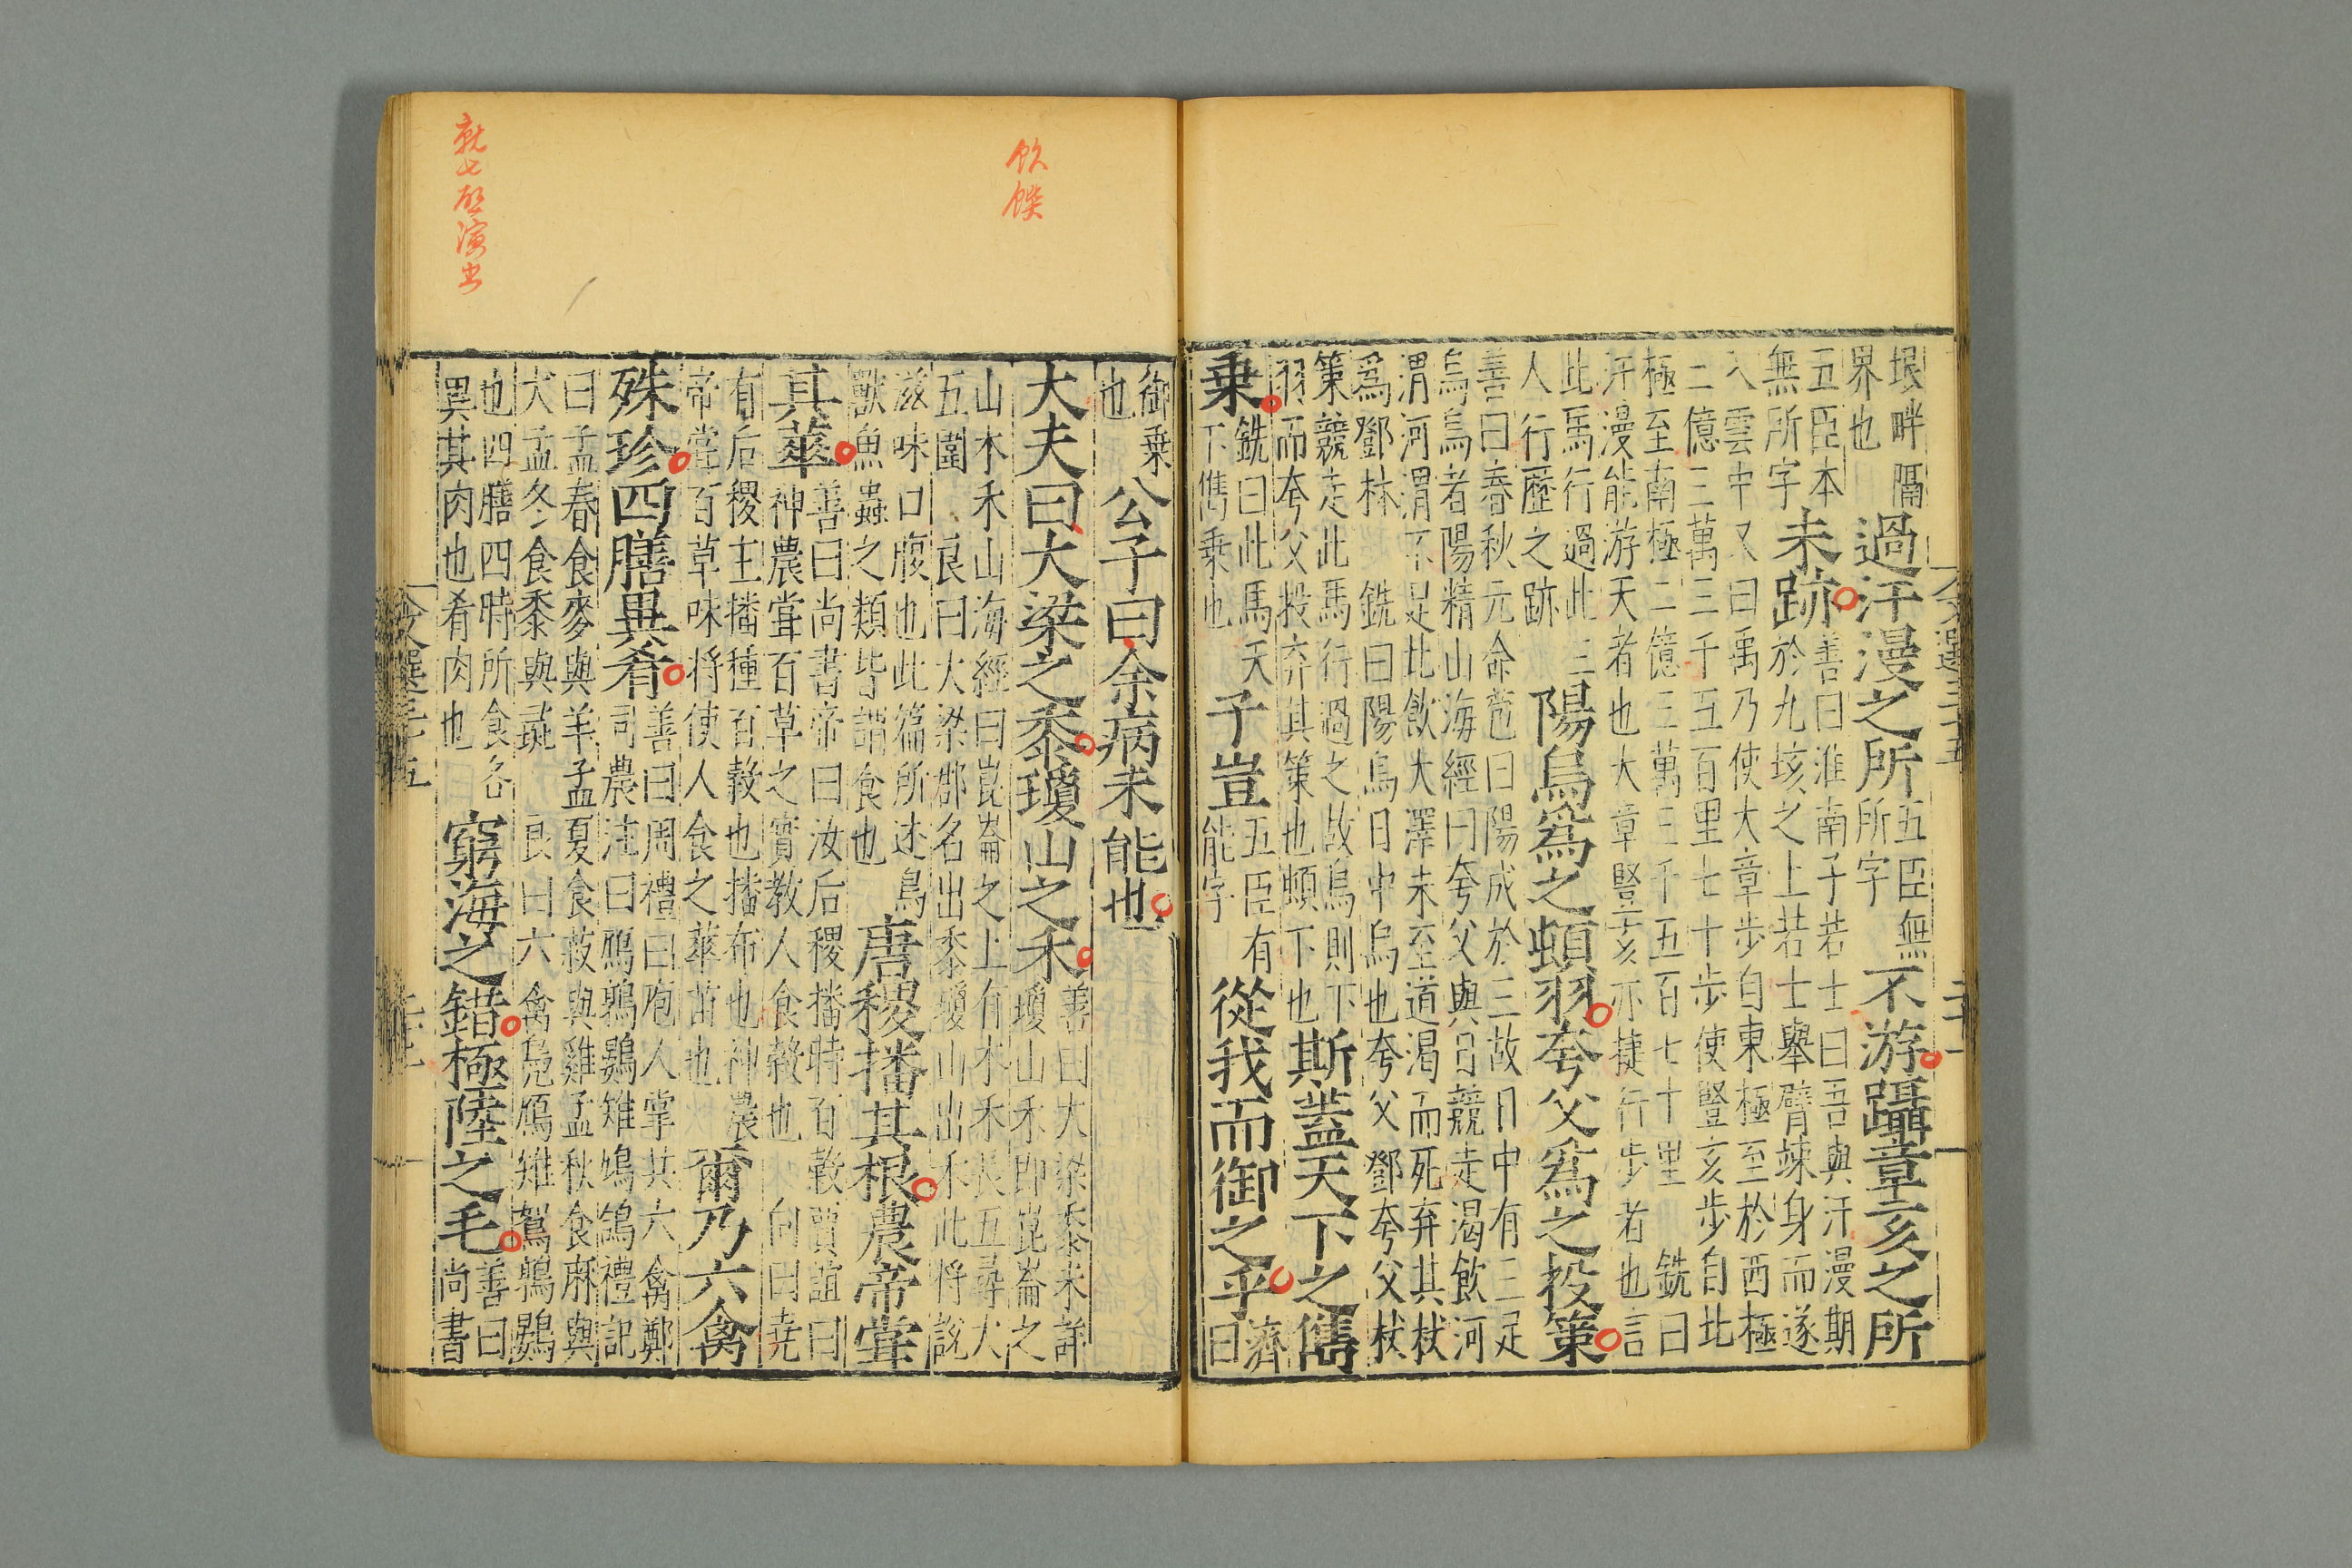 文選三十五
垠畔隔界也過汗漫之所五臣無所字不游躡章亥之所
五臣本無所字未跡善曰淮南子若士曰吾與汗漫期於九垓之上若士舉臂竦身而遂
入雲中又曰禹乃使大章步自東極至於西極
二億三萬三千五百里七十步使豎亥步自北
極至南極二億三萬三千五百七十里 銑曰
汗漫能游天者也大章豎亥亦捷行步者也言
此馬行過此三人行歷之跡陽烏爲之頓羽夸父爲之投策
善曰春秋元命苞曰陽成於三故日中有三足
烏烏者陽精山海經曰夸父與日競走渴飲河
渭河渭不足北飲大澤未至道渴而死弃其杖
爲鄧林 銑曰陽烏日中烏也夸父鄧夸父杖
策競走此馬行過之故烏則下羽而夸父投弃其策也頓下也斯蓋天下之儁
乗銑曰此馬天下儁乗也子豈五臣有能字從我而御之乎濟曰
飲饌
御乗也公子曰余病未能也
大夫曰大梁之黍瓊山之禾善曰大梁黍未詳瓊山禾即崑崙之
山木禾山海經曰崑崙之上有木禾長五尋大
五圍 良曰大梁郡名出黍瓊山出禾此將說
滋味口腹也此篇所述鳥獸魚蟲之類皆謂食也唐稷播其根農帝嘗
其華善曰尚書帝曰汝后稷播時百穀賈誼曰神農嘗百草之實教人食穀也 向曰堯
有后稷主播種百穀也播布也神農帝嘗百草味將使人食之華苗也爾乃六禽
殊珍四膳異肴善曰周禮曰庖人掌共六禽鄭司農注曰鴈鶉鷃雉鳩鴿禮記
曰孟春食麥與羊孟夏食菽與雞孟秋食麻與
犬孟冬食黍與彘 良曰六禽鳧鴈雉鴐鶉鷃
也四膳四時所食各異其肉也肴肉也窮海之錯極陸之毛善曰尚書
就七啟演出